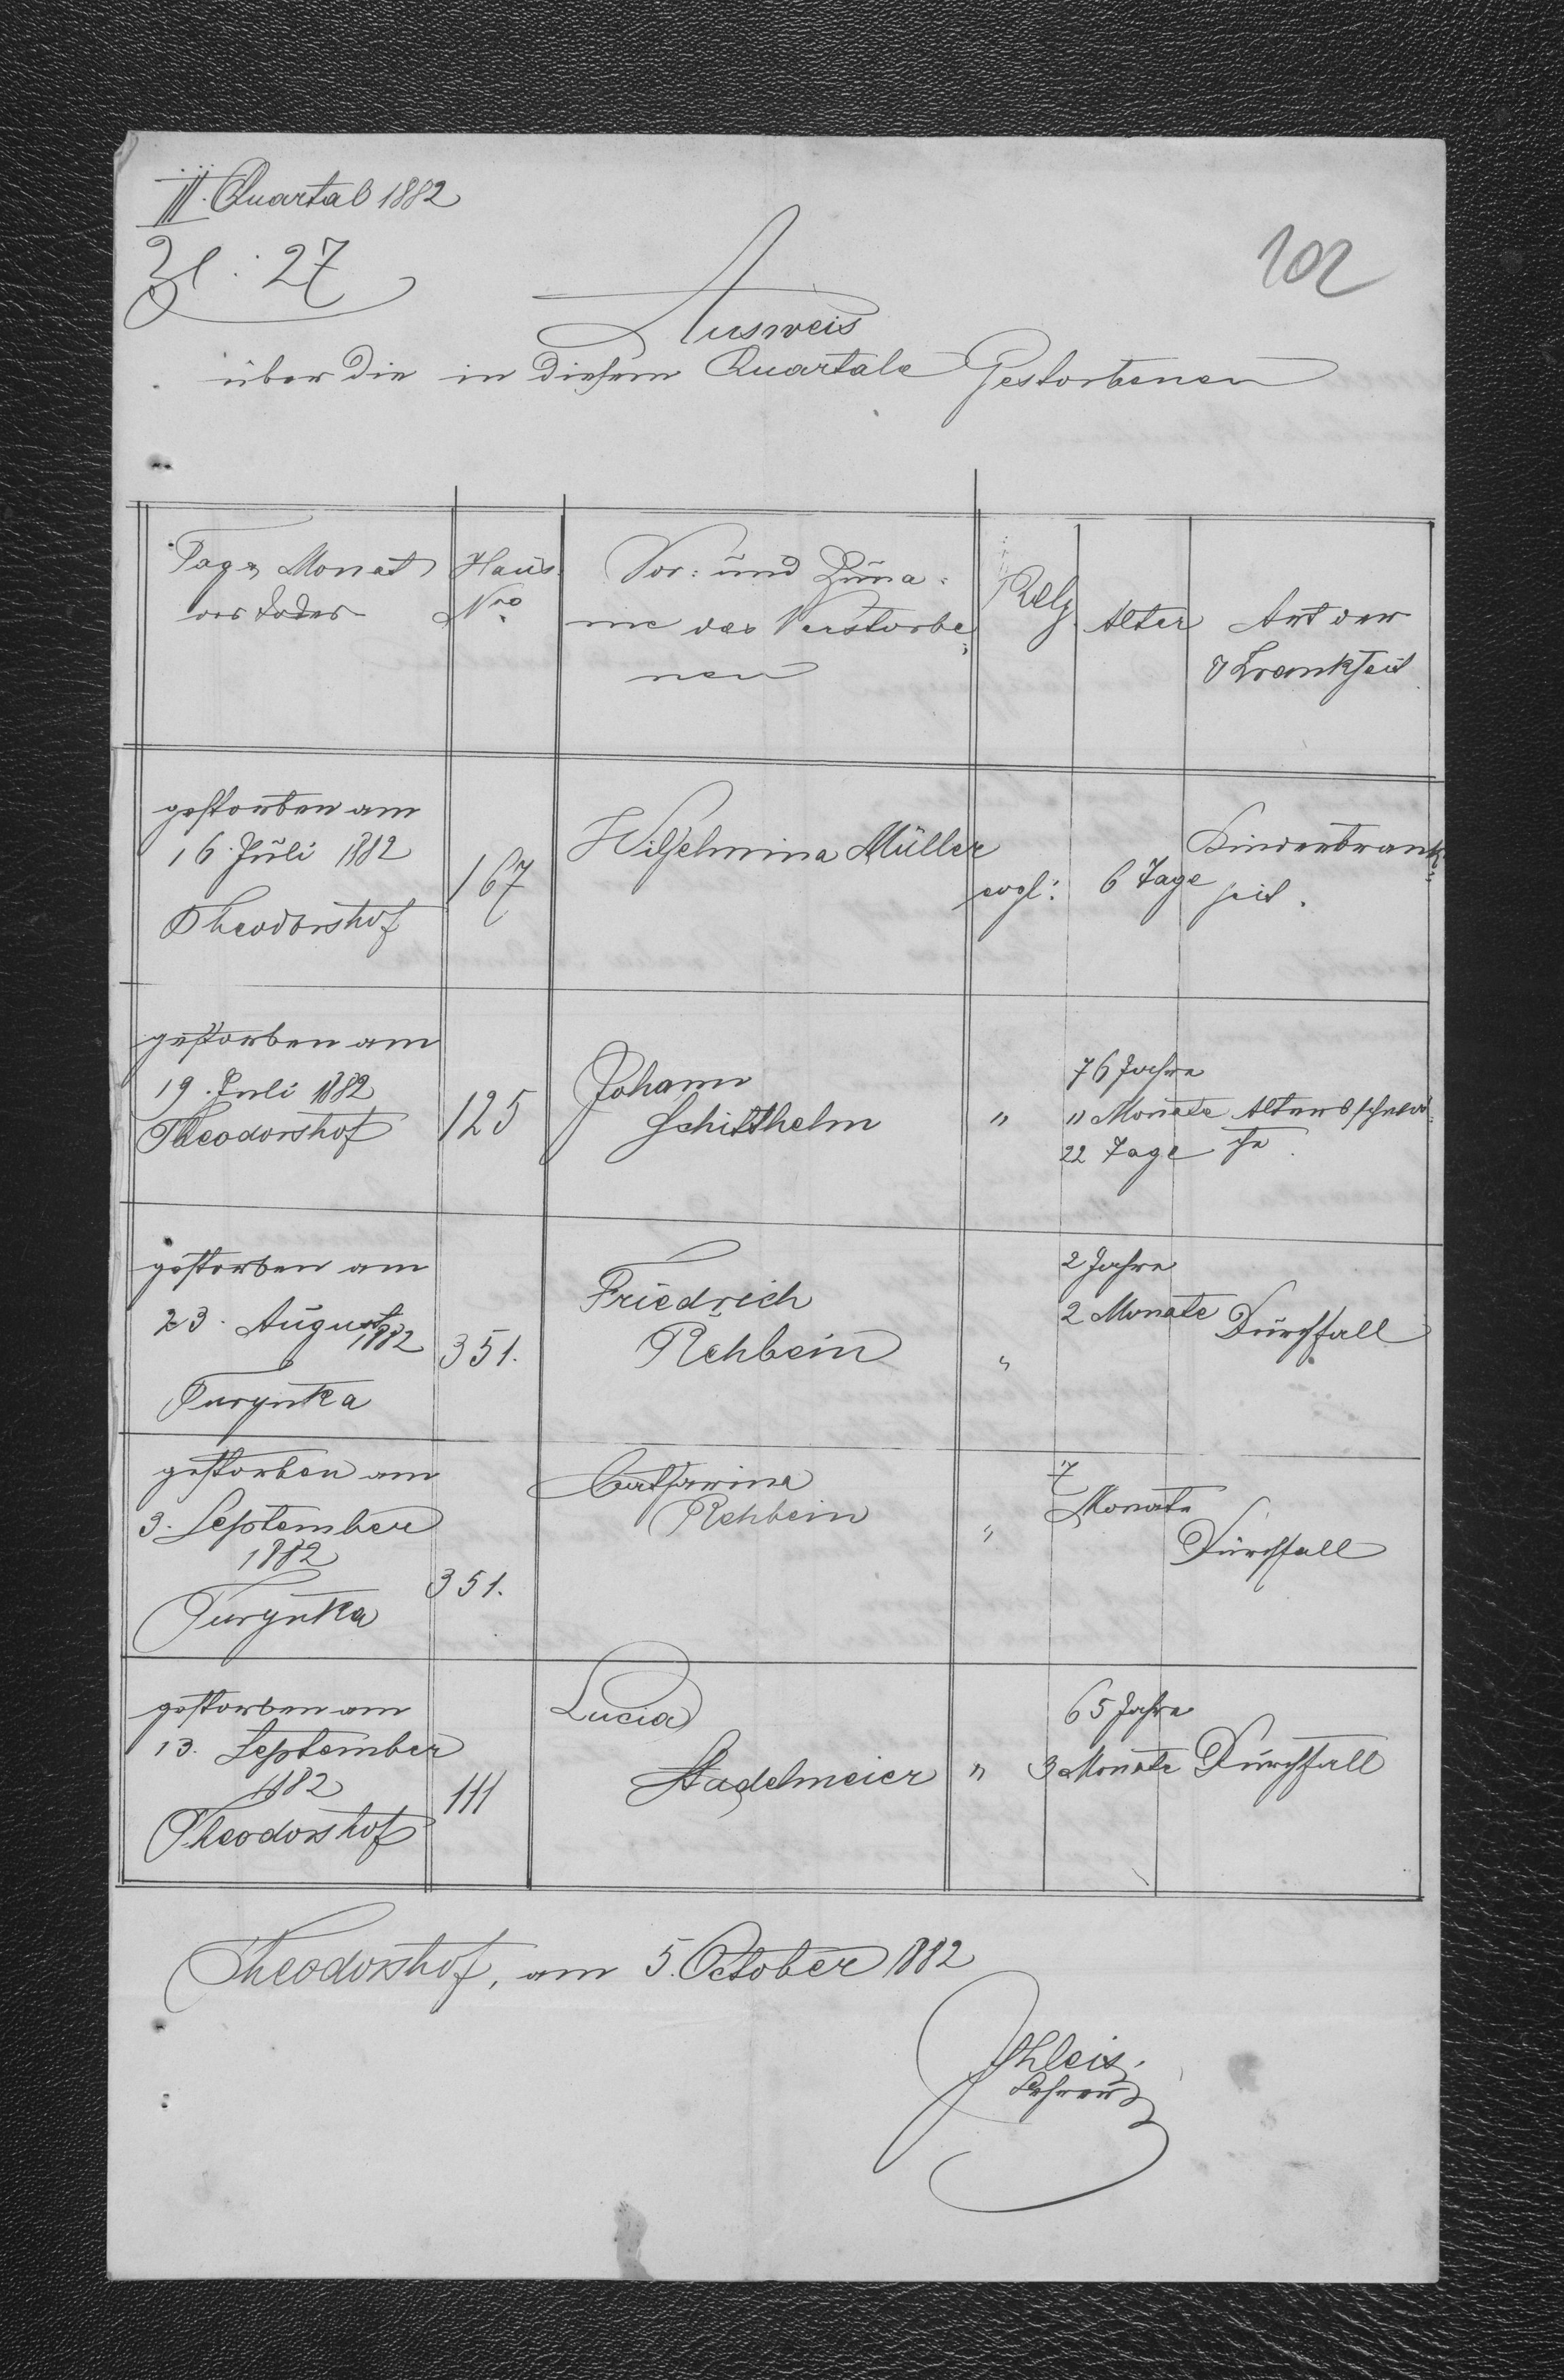 III. Quartal 1882
Zl: 27
102
Ausweis
über die in diesem Quartale Gestorbenen
Tag & Monat
des Todes
Haus
Nro
Vor= und Zuna=
me des Verstorbe=
nen
Relg.
Alter
Art der
Krankheit
gestorben am
16. Juli 1882
Theodorshof
167
Wilhelmina Müller
evgl:
6 Tage
Kinderkrank=
heit.
gestorben am
19. Juli 1882
Theodorshof
125
Johann
Schitthelm
"
76 Jahre
11 Monate
22 Tage
Altersschwä=
che
gestorben am
23. August
1882
Turynka
351.
Friedrich
Rehbein
"
2 Jahre
2 Monate
Durchfall
gestorben am
3. September
1882
Turynka
351.
Catharina
Rehbein
"
7
Monate
Durchfall
gestorben am
13. September
1882
Theodorshof
111
Lucia
Stadelmeier
"
65 Jahre
3 Monate
Durchfall
Theodorshof, am 5. October 1882
Lehrer